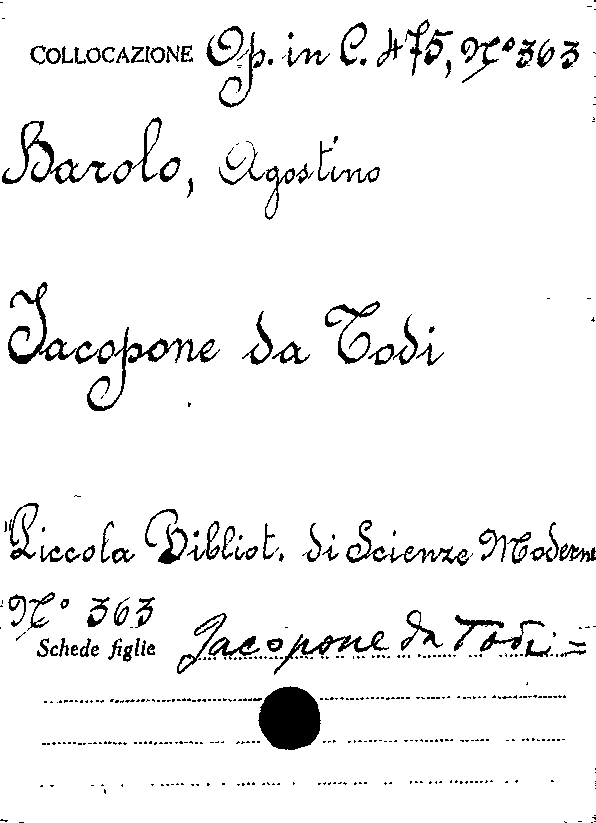 COLLOCAZIONE Op. in C. 475, N° 363
Barolo, Agostino
Jacopone da Todi
"Piccola Bibliot. di Scienze Moderne
N° 363
Schede figlie Jacopone da Todi =